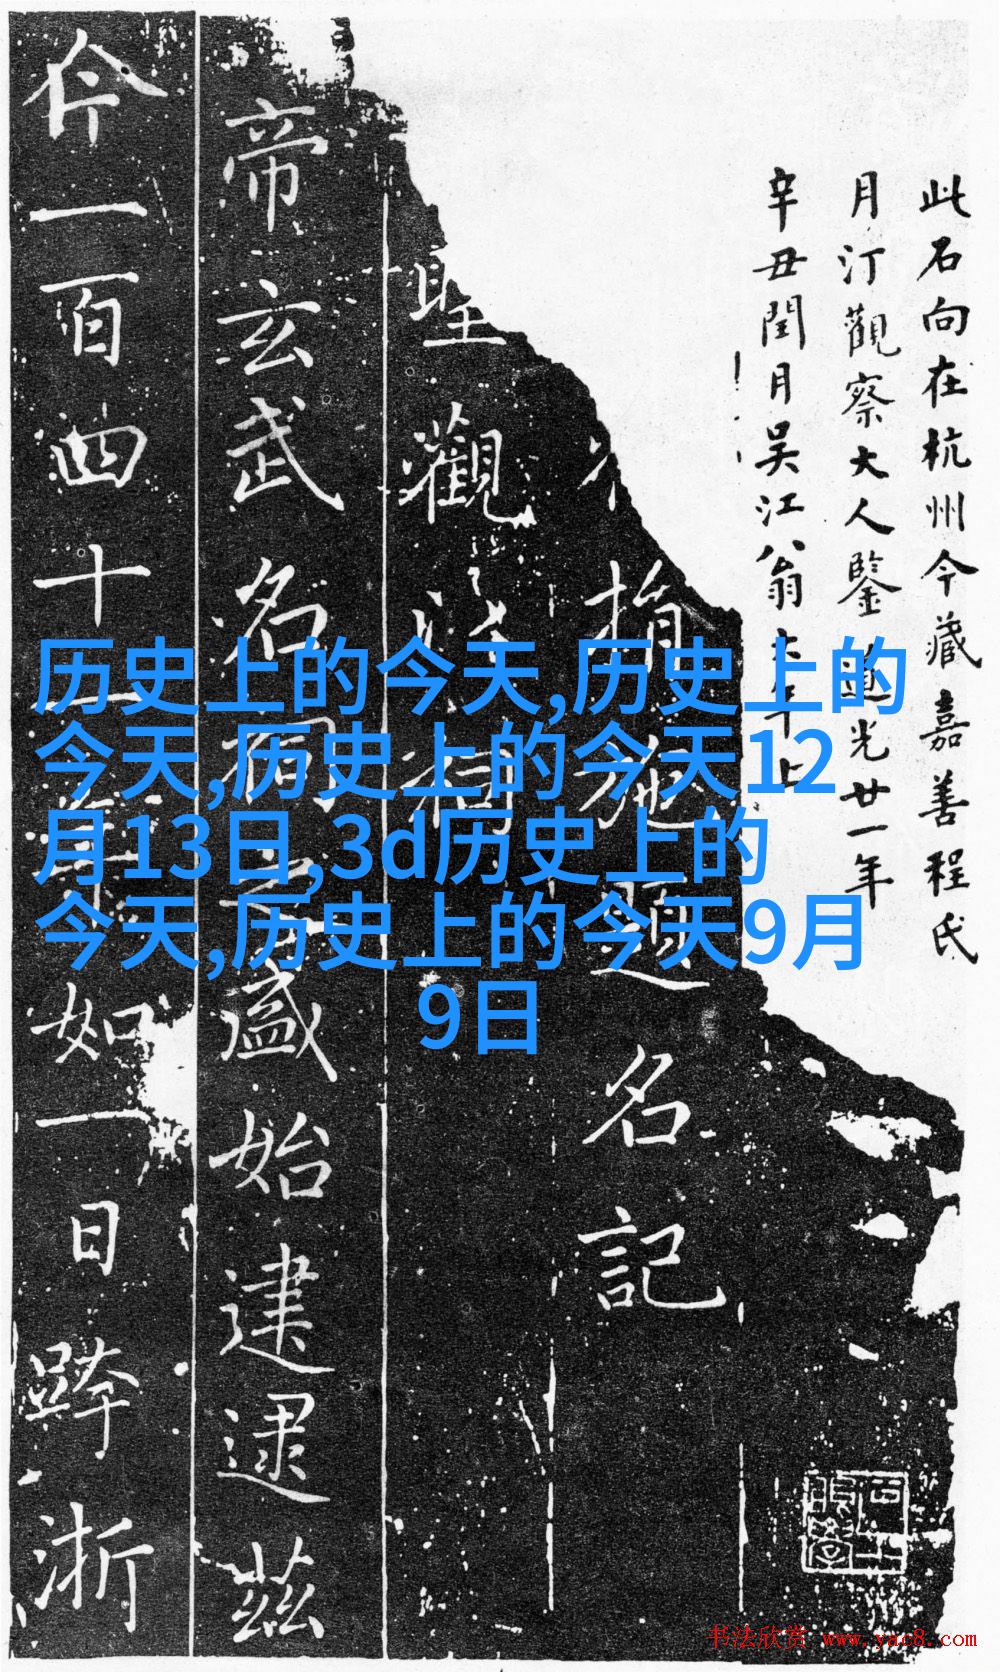 此石向在杭州今藏嘉善程氏
月汀觀察大人鑒 道光廿一年
辛丑閏月吳江翁大年上
指施題名記
聖觀 祠
帝玄武名祠之盛始建逮茲
仐一百四十一年如一日跨浙
历史上的今天,历史上的
今天,历史上的今天12
月13日,3d历史上的
今天,历史上的今天9月
9日
书法欣赏 www.yac8.com